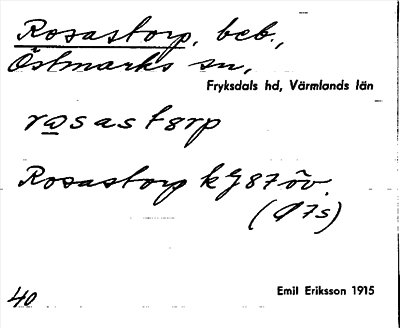 Rosastorp, beb.,
Östmarks sn,
Fryksdals hd, Värmlands län
rosastorp
Rosastorp kJ 87 öv.
40
Emil Eriksson 1915